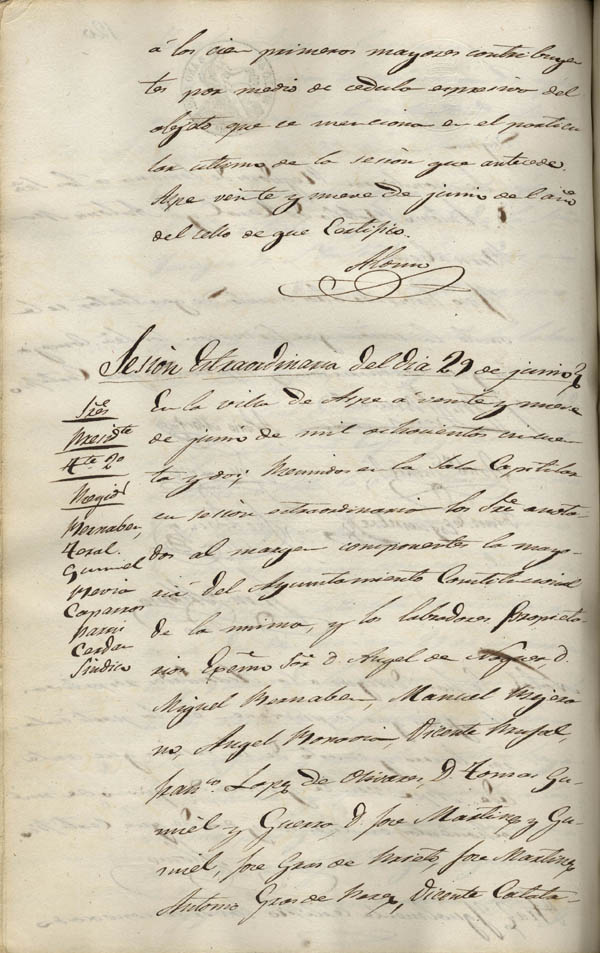 á los cien primeros mayores contribuyen
tes por medio de cedula espresiva del
objeto que se menciona en el particu
lar ultimo de la sesion que antecede.
Aspe veinte y nueve de junio de l año
del sello de que Certifico.
Alonso
Sesion Estraordinaria del dia 29 de junio
Sres
Presidte
4te 2o
Regids
Bernabeu,
Teral.
Gumiel
Pavia
Caparros
Parri
Cerdan
Sindico
En la villa de Aspe á veinte y nueve
de junio de mil ochocientos cincuen
ta y dos; Reunidos en la Sala Capitular
en sesion estraordinaria los Sres anota
dos al margen componentes la mayo
ria del Ayuntamiento Constitucional
de la misma, y los labradores Propieta
rios Exmo Sor D. Angel de D.
Miguel Bernabeu, Manuel
no, Angel Vicente
Franco Lopez de Olivares, D. Tomas Gu
miel y Guerra D. Jose Martinez y Gu
miel, Jose Gras de Jose Martinez
Antonio Gras de Perez, Vicente Catala-